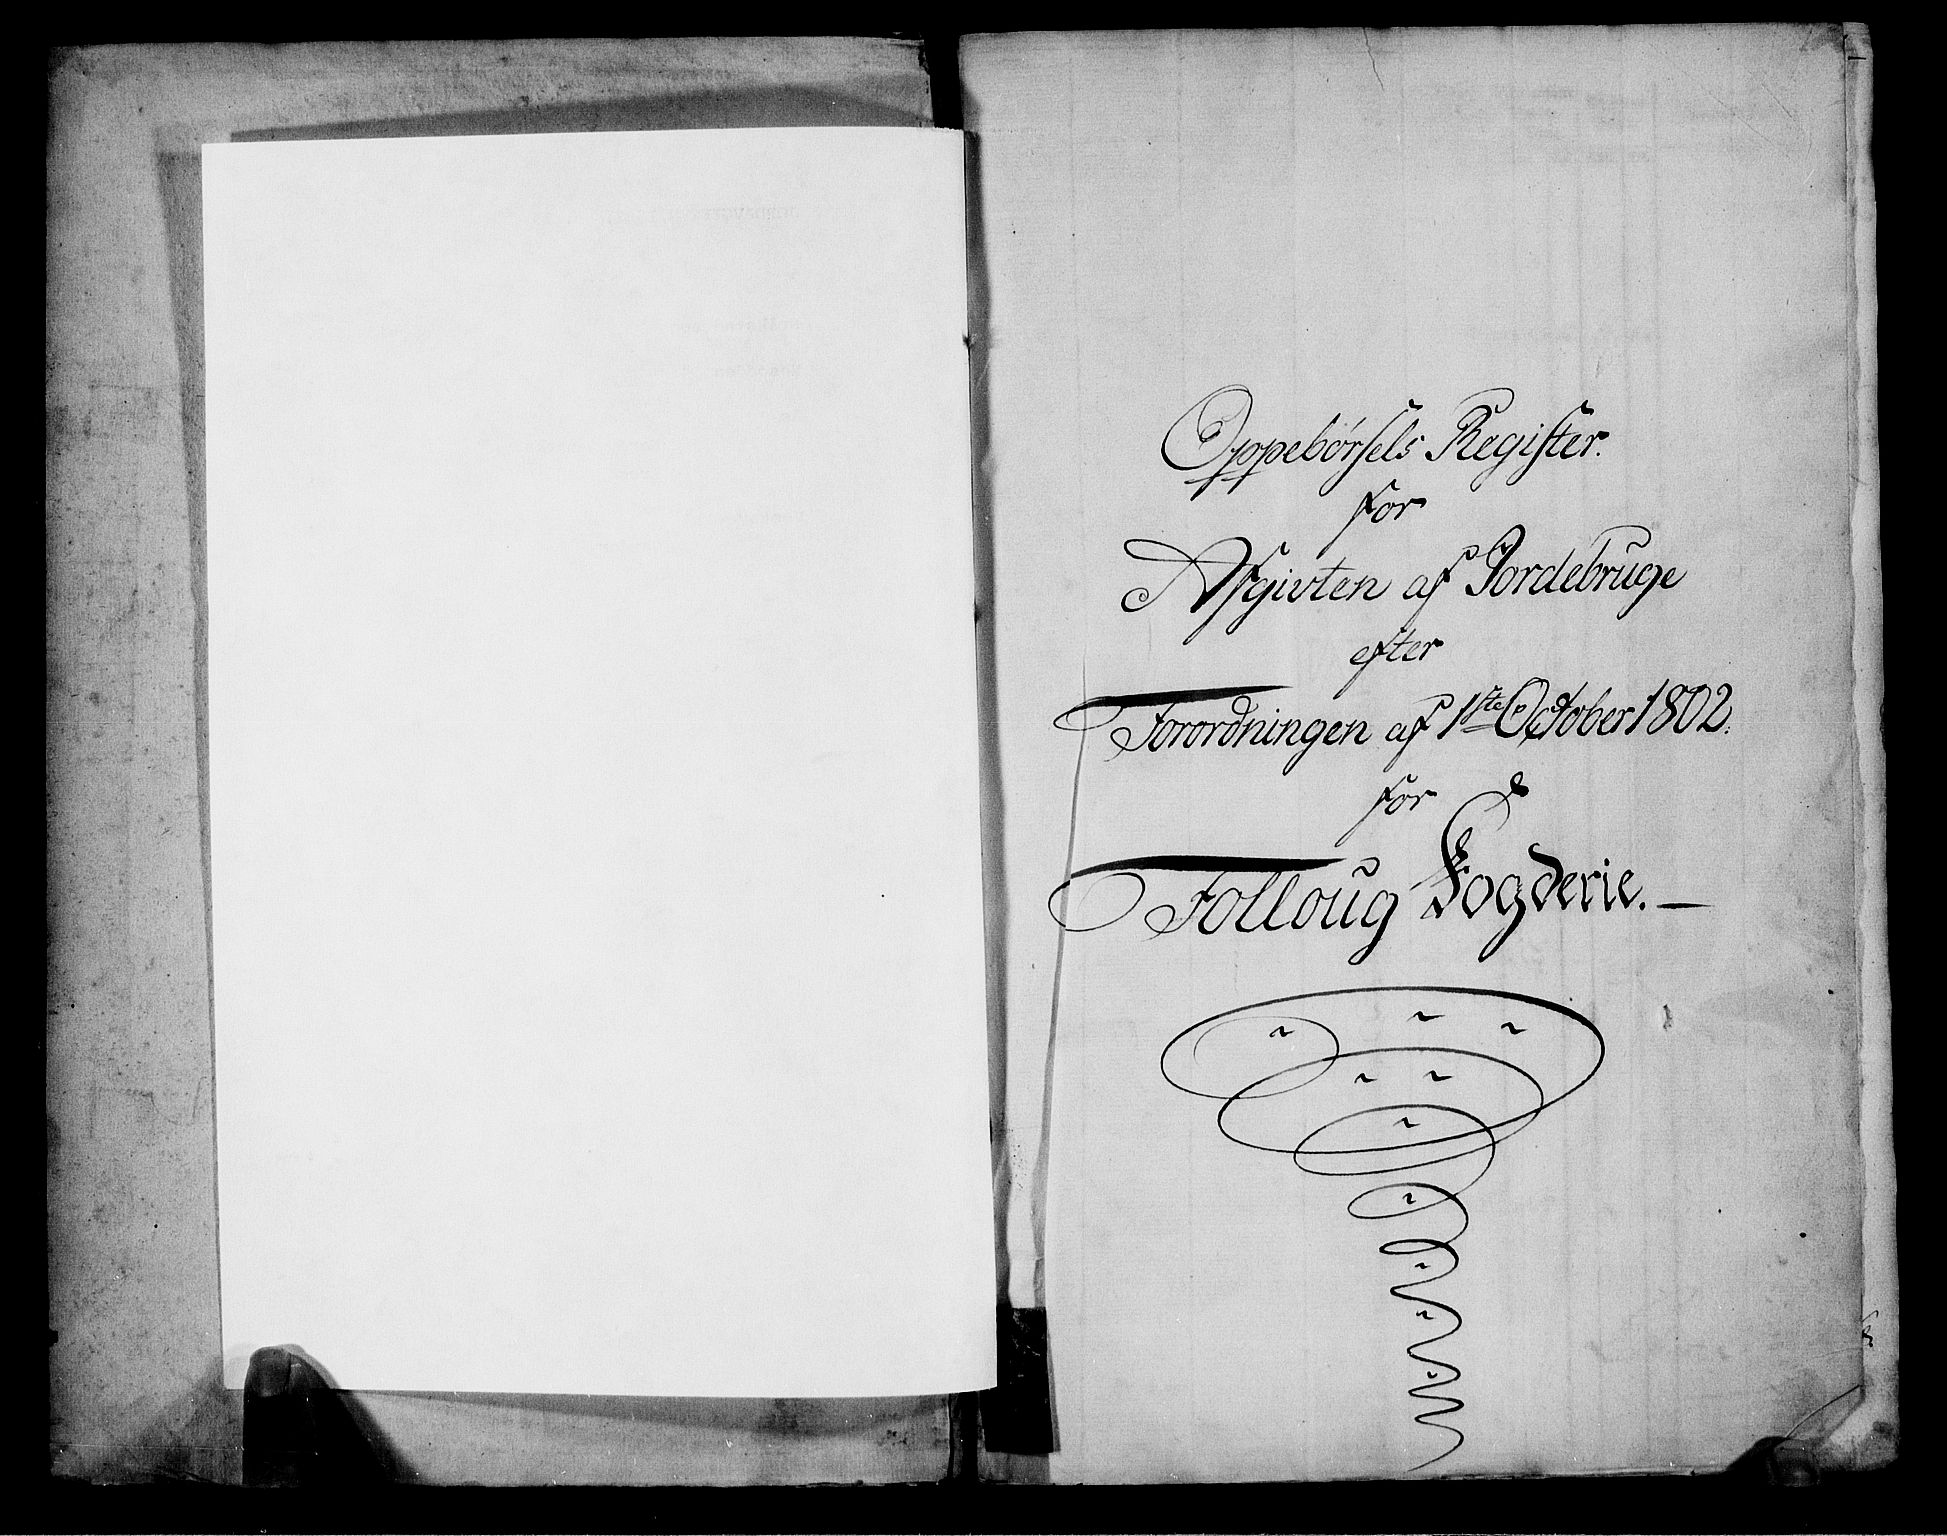 Oppebörsels Register.
for
Afgivten af Jordebruge
efter
Forordningen af 1ste October 1802.
for
Folloug Fogderie. —